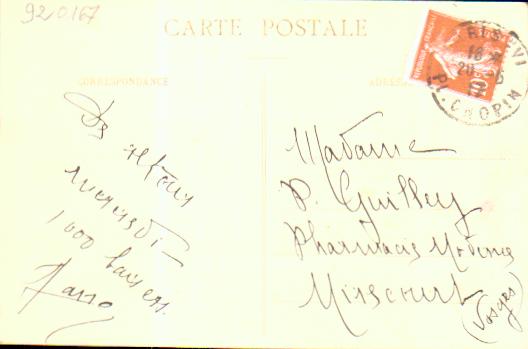 920167
CARTE POSTALE
CORRESPONDANCE
ADRESSE
PARIS VI
18
20
PL. CHOPIN
10
De retour
mercredi
1000 baisers
Madame
P. Guilley
Pharmacie Moderne
Mirecourt
(Vosges)